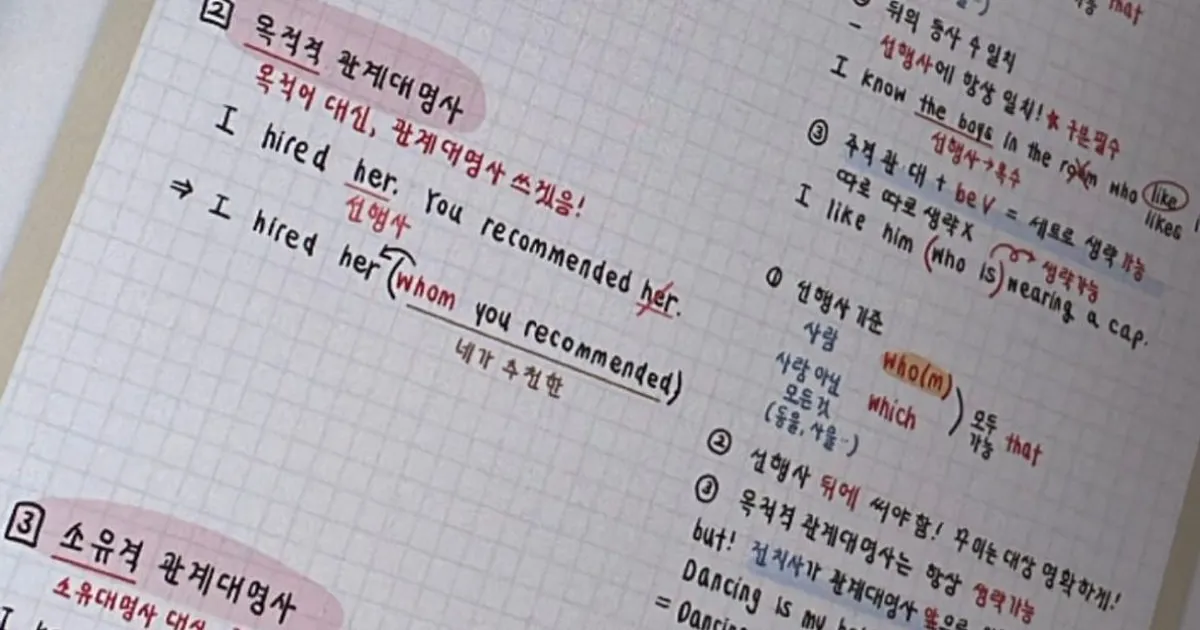 2 목적격 관계대명사
목적어 대신, 관계대명사 쓰겠음!
I hired her. You recommended her.
선행사
⇒ I hired her (whom you recommended)
네가 추천한
3 소유격 관계대명사
소유대명사 대신
I
that
뒤의 동사 수일치
- 선행사에 항상 일치! ★ 구분필수
I know the boys in the room who like
선행사→복수
likes
③ 주격 관·대 + beV = 세트로 생략 가능
따로 따로 생략 X
생략가능
I like him (who is) wearing a cap.
① 선행사 기준
사람 who(m)
사람 아닌 모든것 which
(동물, 사물..)
모두 가능 that
② 선행사 뒤에 써야함! 꾸미는 대상 명확하게!
③ 목적격 관계대명사는 항상 생략가능
but! 전치사가 관계대명사 앞으로
Dancing is my
= Dancing